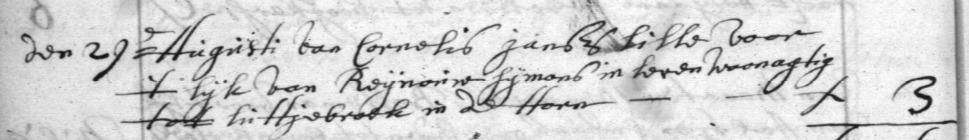 den 29 = Augusti van Cornelis jansz lille voor
t lijk van Reijnouw sijmons in leven woonagtig
tot luttjebroek in de Horn — — f 3